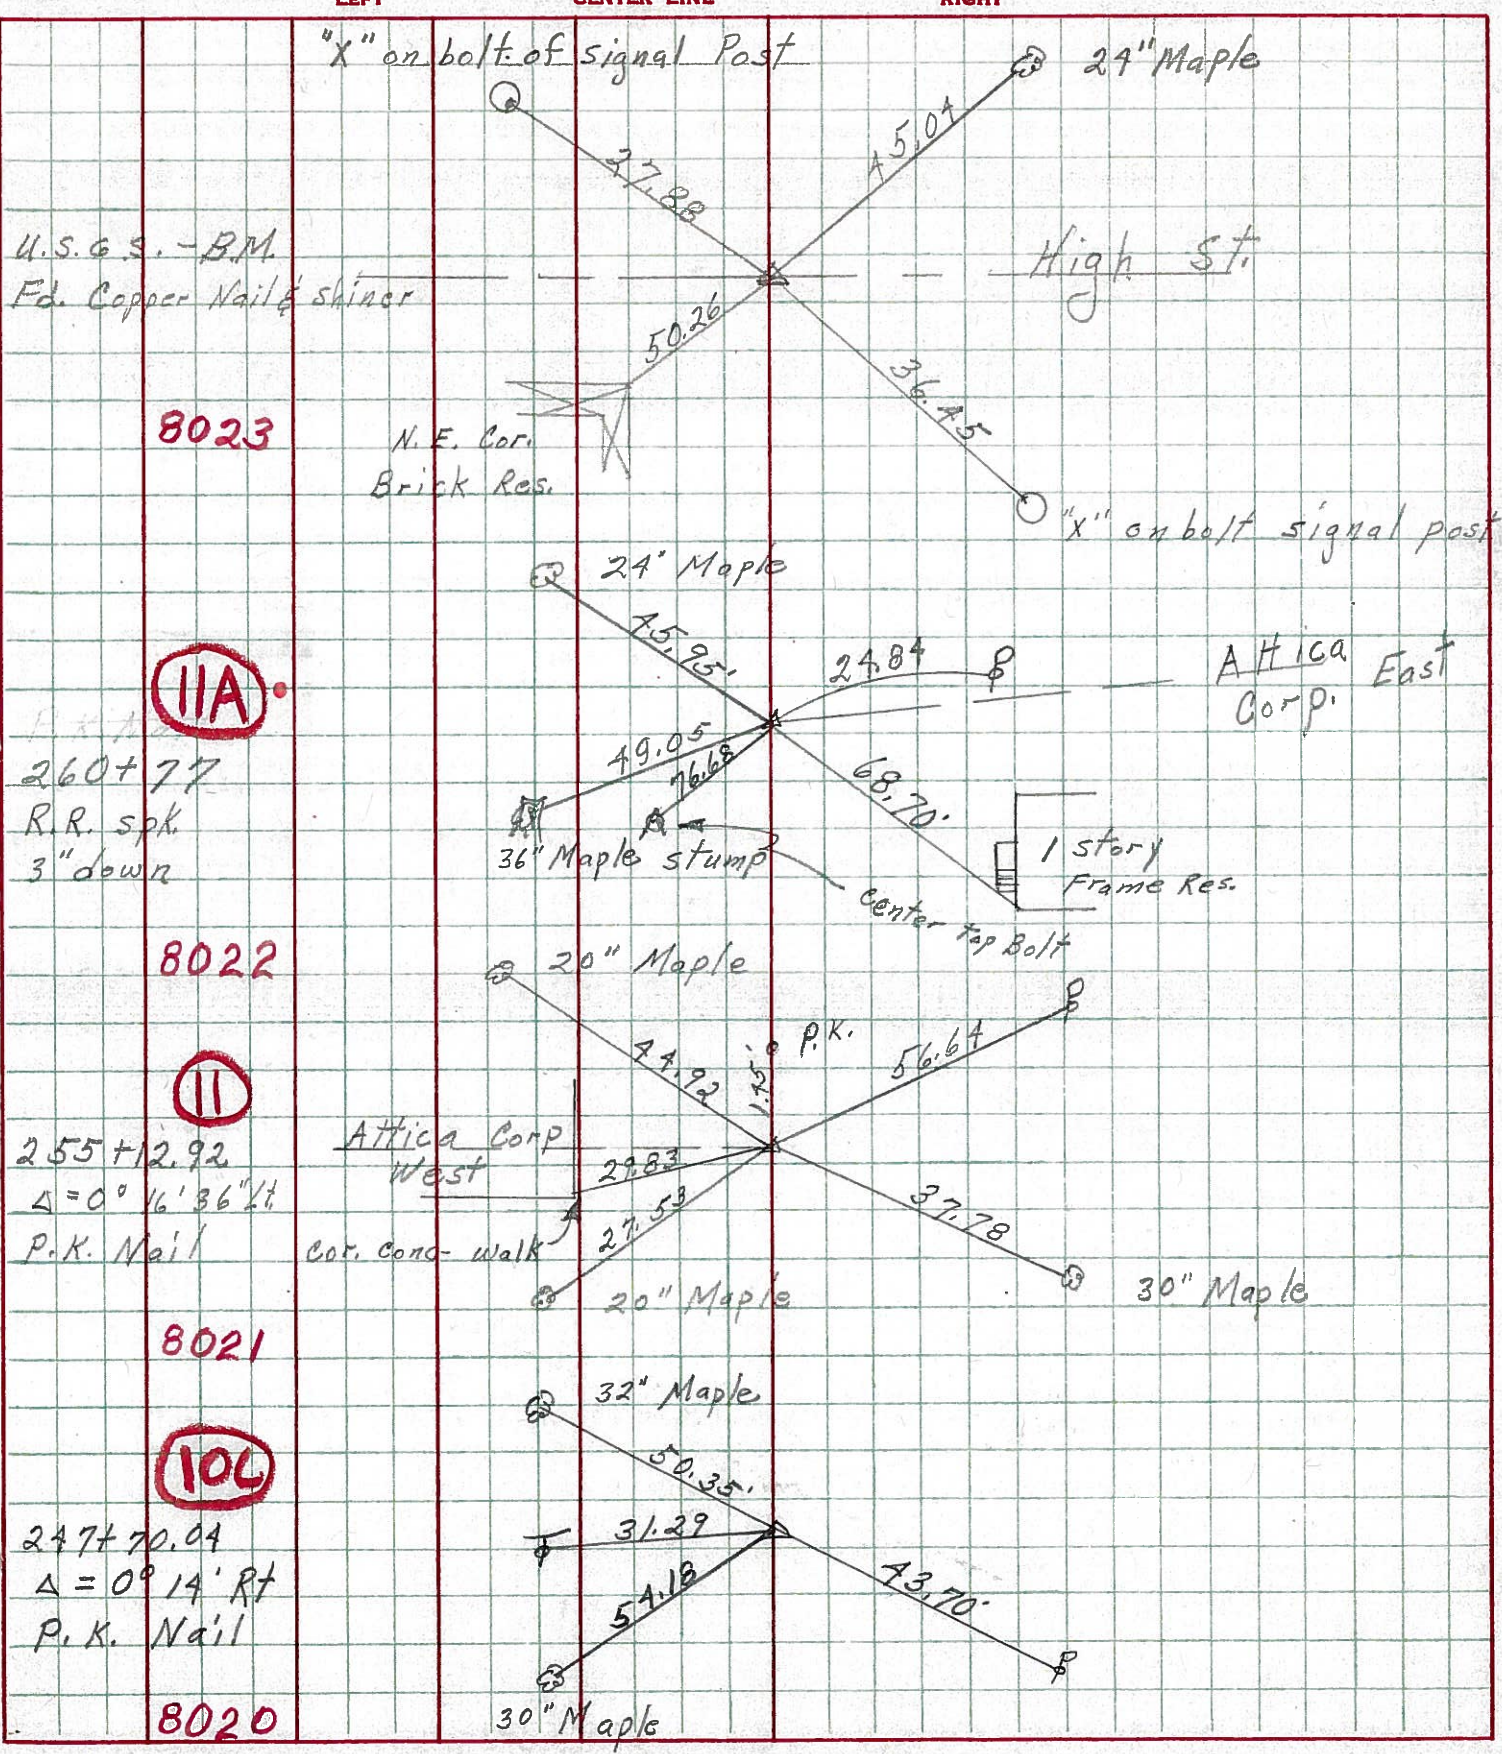 LEFT CENTER LINE RIGHT
"X" on bolt of signal Post
24" Maple
27.88
45.04
U.S.G.S. - B.M.
Fd. Copper Nail & shiner
High St.
50.26
36.45
8023
N.E. Cor.
Brick Res.
"X" on bolt signal post
24" Maple
45.95'
24.84
Attica
Corp. East
11A
49.05
76.68
68.70'
260+77
R.R. spk.
3" down
36" Maple stump
1 story
Frame Res.
Center Top Bolt
8022
20" Maple
P.K.
44.92
1.45'
56.64
11
255+12.92
Δ = 0° 16' 36" Lt
P.K. Nail
Attica Corp
West
29.83
27.53
37.78
Cor. Conc- walk
20" Maple
30" Maple
8021
32" Maple
10C
50.35'
31.29
247+70.04
Δ = 0° 14' Rt
P.K. Nail
54.18
43.70'
8020
30" Maple